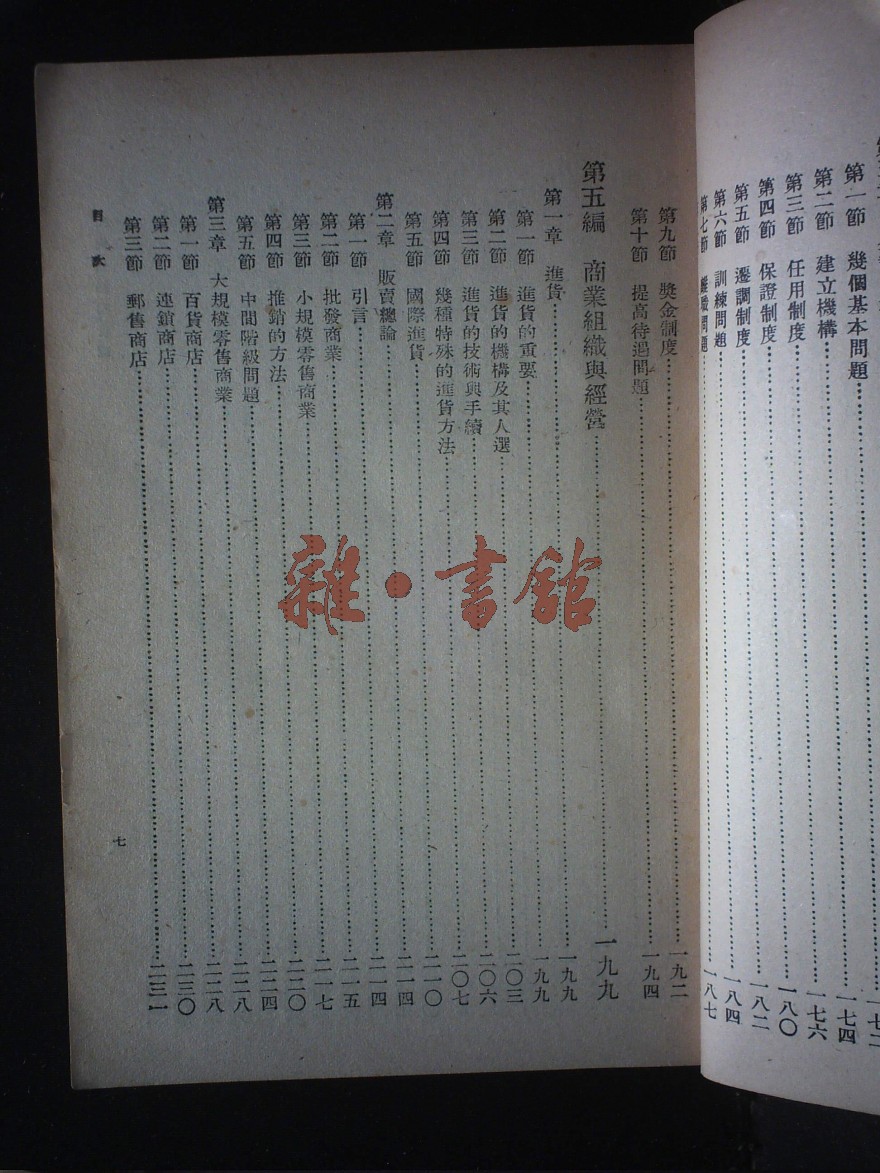 第一節 幾個基本問題……一七二
第二節 建立機構……一七四
第三節 任用制度……一七六
第四節 保證制度……一八〇
第五節 遷調制度……一八二
第六節 訓練問題……一八四
第七節 離職問題……一八七
第九節 獎金制度……一九二
第十節 提高待遇問題……一九四
第五編 商業組織與經營……一九九
第一章 進貨……一九九
第一節 進貨的重要……一九九
第二節 進貨的機構及其人選……二〇三
第三節 進貨的技術與手續……二〇六
第四節 幾種特殊的進貨方法……二〇七
第五節 國際進貨……二一〇
第二章 販賣總論……二一四
第一節 引言……二一四
第二節 批發商業……二一五
第三節 小規模零售商業……二一七
第四節 推銷的方法……二二〇
第五節 中間階級問題……二二四
第三章 大規模零售商業……二二八
第一節 百貨商店……二二八
第二節 連鎖商店……二三〇
第三節 郵售商店……二三一
目次
七
雜·書館